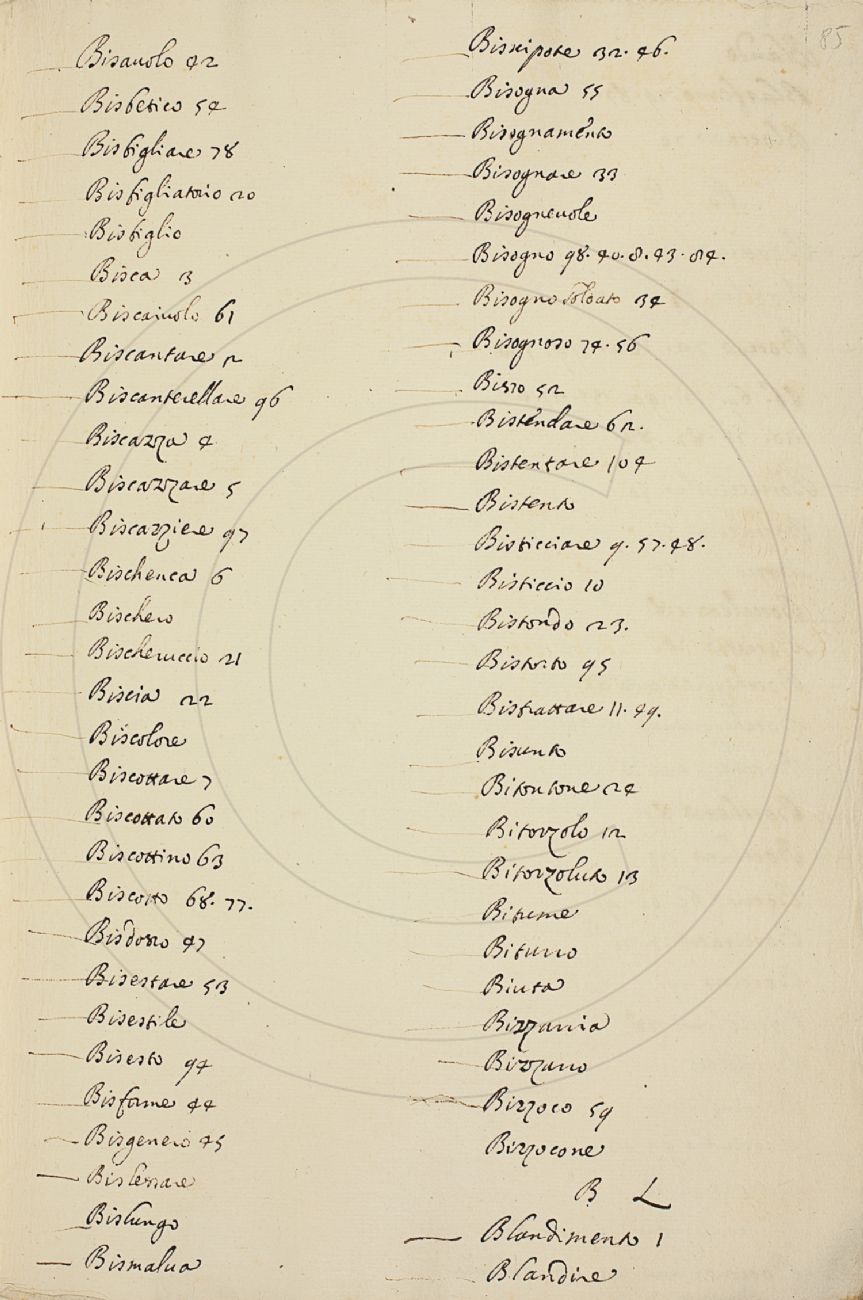 85
Bisauolo 42
Bisbetico 54
Bisbigliare 78
Bisbigliatorio 20
Bisbiglio
Bisca 3
Biscaiuolo 61
Biscantare 2
Biscanterellare 96
Biscazza 4
Biscazzare 5
Biscazziere 97
Bischenca 6
Bischero
Bischeruccio 21
Biscia 22
Biscolore
Biscottare 7
Biscottato 60
Biscottino 63
Biscotto 68. 77.
Bisdosso 47
Bisestare 53
Bisestile
Bisesto 94
Bisforme 44
Bisgenero 45
Bislessare
Bislungo
Bismalua
Bisnipote 32. 46.
Bisogna 55
Bisognamento
Bisognare 33
Bisogneuole
Bisogno 98. 40. 8. 43. 84.
Bisogno soldato 34
Bisognoso 74. 56
Bisso 52
Bistendare 62.
Bistentare 104
Bistento
Bisticciare 9. 57. 48.
Bisticcio 10
Bistondo 23.
Bistorto 95
Bistrattare 11. 49.
Bisunto
Bitontone 24
Bitorzolo 12
Bitorzoluto 13
Bitume
Biturro
Biuta
Bizzarria
Bizzarro
Bizzoco 59
Bizzocone
B L
Blandimento 1
Blandire